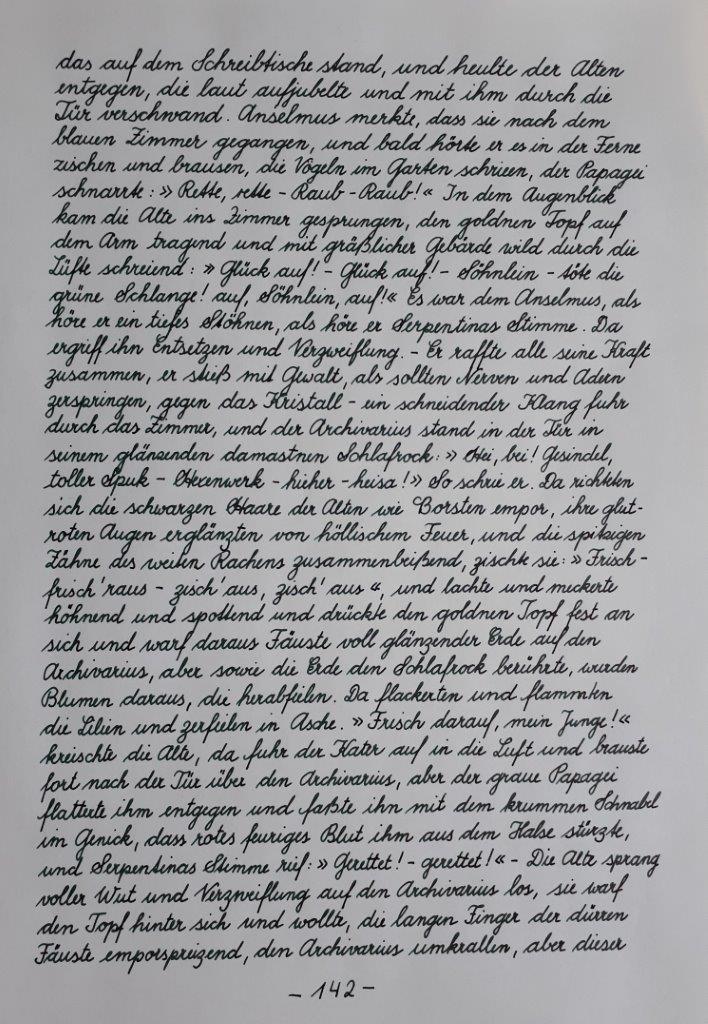 das auf dem Schreibtische stand, und heulte der Alten
entgegen, die laut aufjubelte und mit ihm durch die
Tür verschwand. Anselmus merkte, dass sie nach dem
blauen Zimmer gegangen, und bald hörte er es in der Ferne
zischen und brausen, die Vögeln im Garten schrieen, der Papagei
schnarrte: » Rette, rette – Raub – Raub! « In dem Augenblick
kam die Alte ins Zimmer gesprungen, den goldnen Topf auf
dem Arm tragend und mit gräßlicher Gebärde wild durch die
Lüfte schreiend: » Glück auf! – Glück auf! – Söhnlein – töte die
grüne Schlange! auf, Söhnlein, auf! « Es war dem Anselmus, als
höre er ein tiefes Stöhnen, als höre er Serpentinas Stimme. Da
ergriff ihn Entsetzen und Verzweiflung. – Er raffte alle seine Kraft
zusammen, er stieß mit Gewalt, als sollten Nerven und Adern
zerspringen, gegen das Kristall – ein schneidender Klang fuhr
durch das Zimmer, und der Archivarius stand in der Tür in
seinem glänzenden damastnen Schlafrock: » Hei, bei! Gesindel,
toller Spuk – Hexenwerk – hieher – heisa! » So schrie er. Da richteten
sich die schwarzen Haare der Alten wie Borsten empor, ihre glut-
roten Augen erglänzten von höllischem Feuer, und die spitzigen
Zähne des weiten Rachens zusammenbeißend, zischte sie: » Frisch –
frisch 'raus – zisch' aus, zisch' aus «, und lachte und meckerte
höhnend und spottend und drückte den goldnen Topf fest an
sich und warf daraus Fäuste voll glänzender Erde auf den
Archivarius, aber sowie die Erde den Schlafrock berührte, wurden
Blumen daraus, die herabfielen. Da flackerten und flammten
die Lilien und zerfielen in Asche. » Frisch darauf, mein Junge! «
kreischte die Alte, da fuhr der Kater auf in die Luft und brauste
fort nach der Tür über den Archivarius, aber der graue Papagei
flatterte ihm entgegen und faßte ihn mit dem krummen Schnabel
im Genick, dass rotes feuriges Blut ihm aus dem Halse stürzte,
und Serpentinas Stimme rief: » Gerettet! – gerettet! « – Die Alte sprang
voller Wut und Verzweiflung auf den Archivarius los, sie warf
den Topf hinter sich und wollte, die langen Finger der dürren
Fäuste emporspreizend, den Archivarius umkrallen, aber dieser
– 142 –